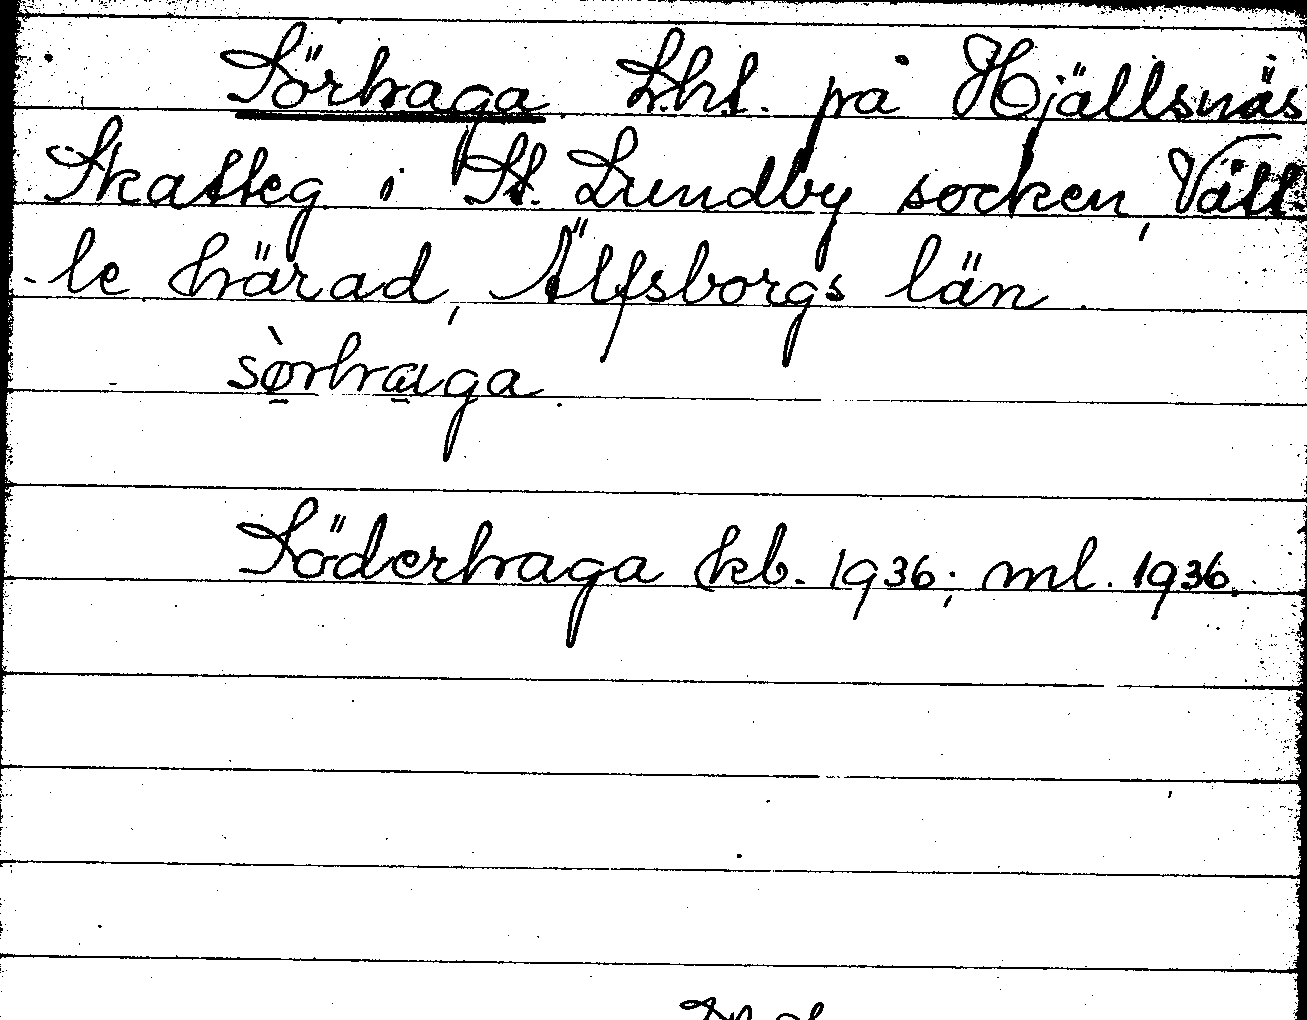 Sörhaga Lht. på Hjällsnäs
Skatteg i St. Lundby socken, Vätt-
le härad, Älfsborgs län.
sø̀rhaga
Söderhaga kb. 1936; ml. 1936.